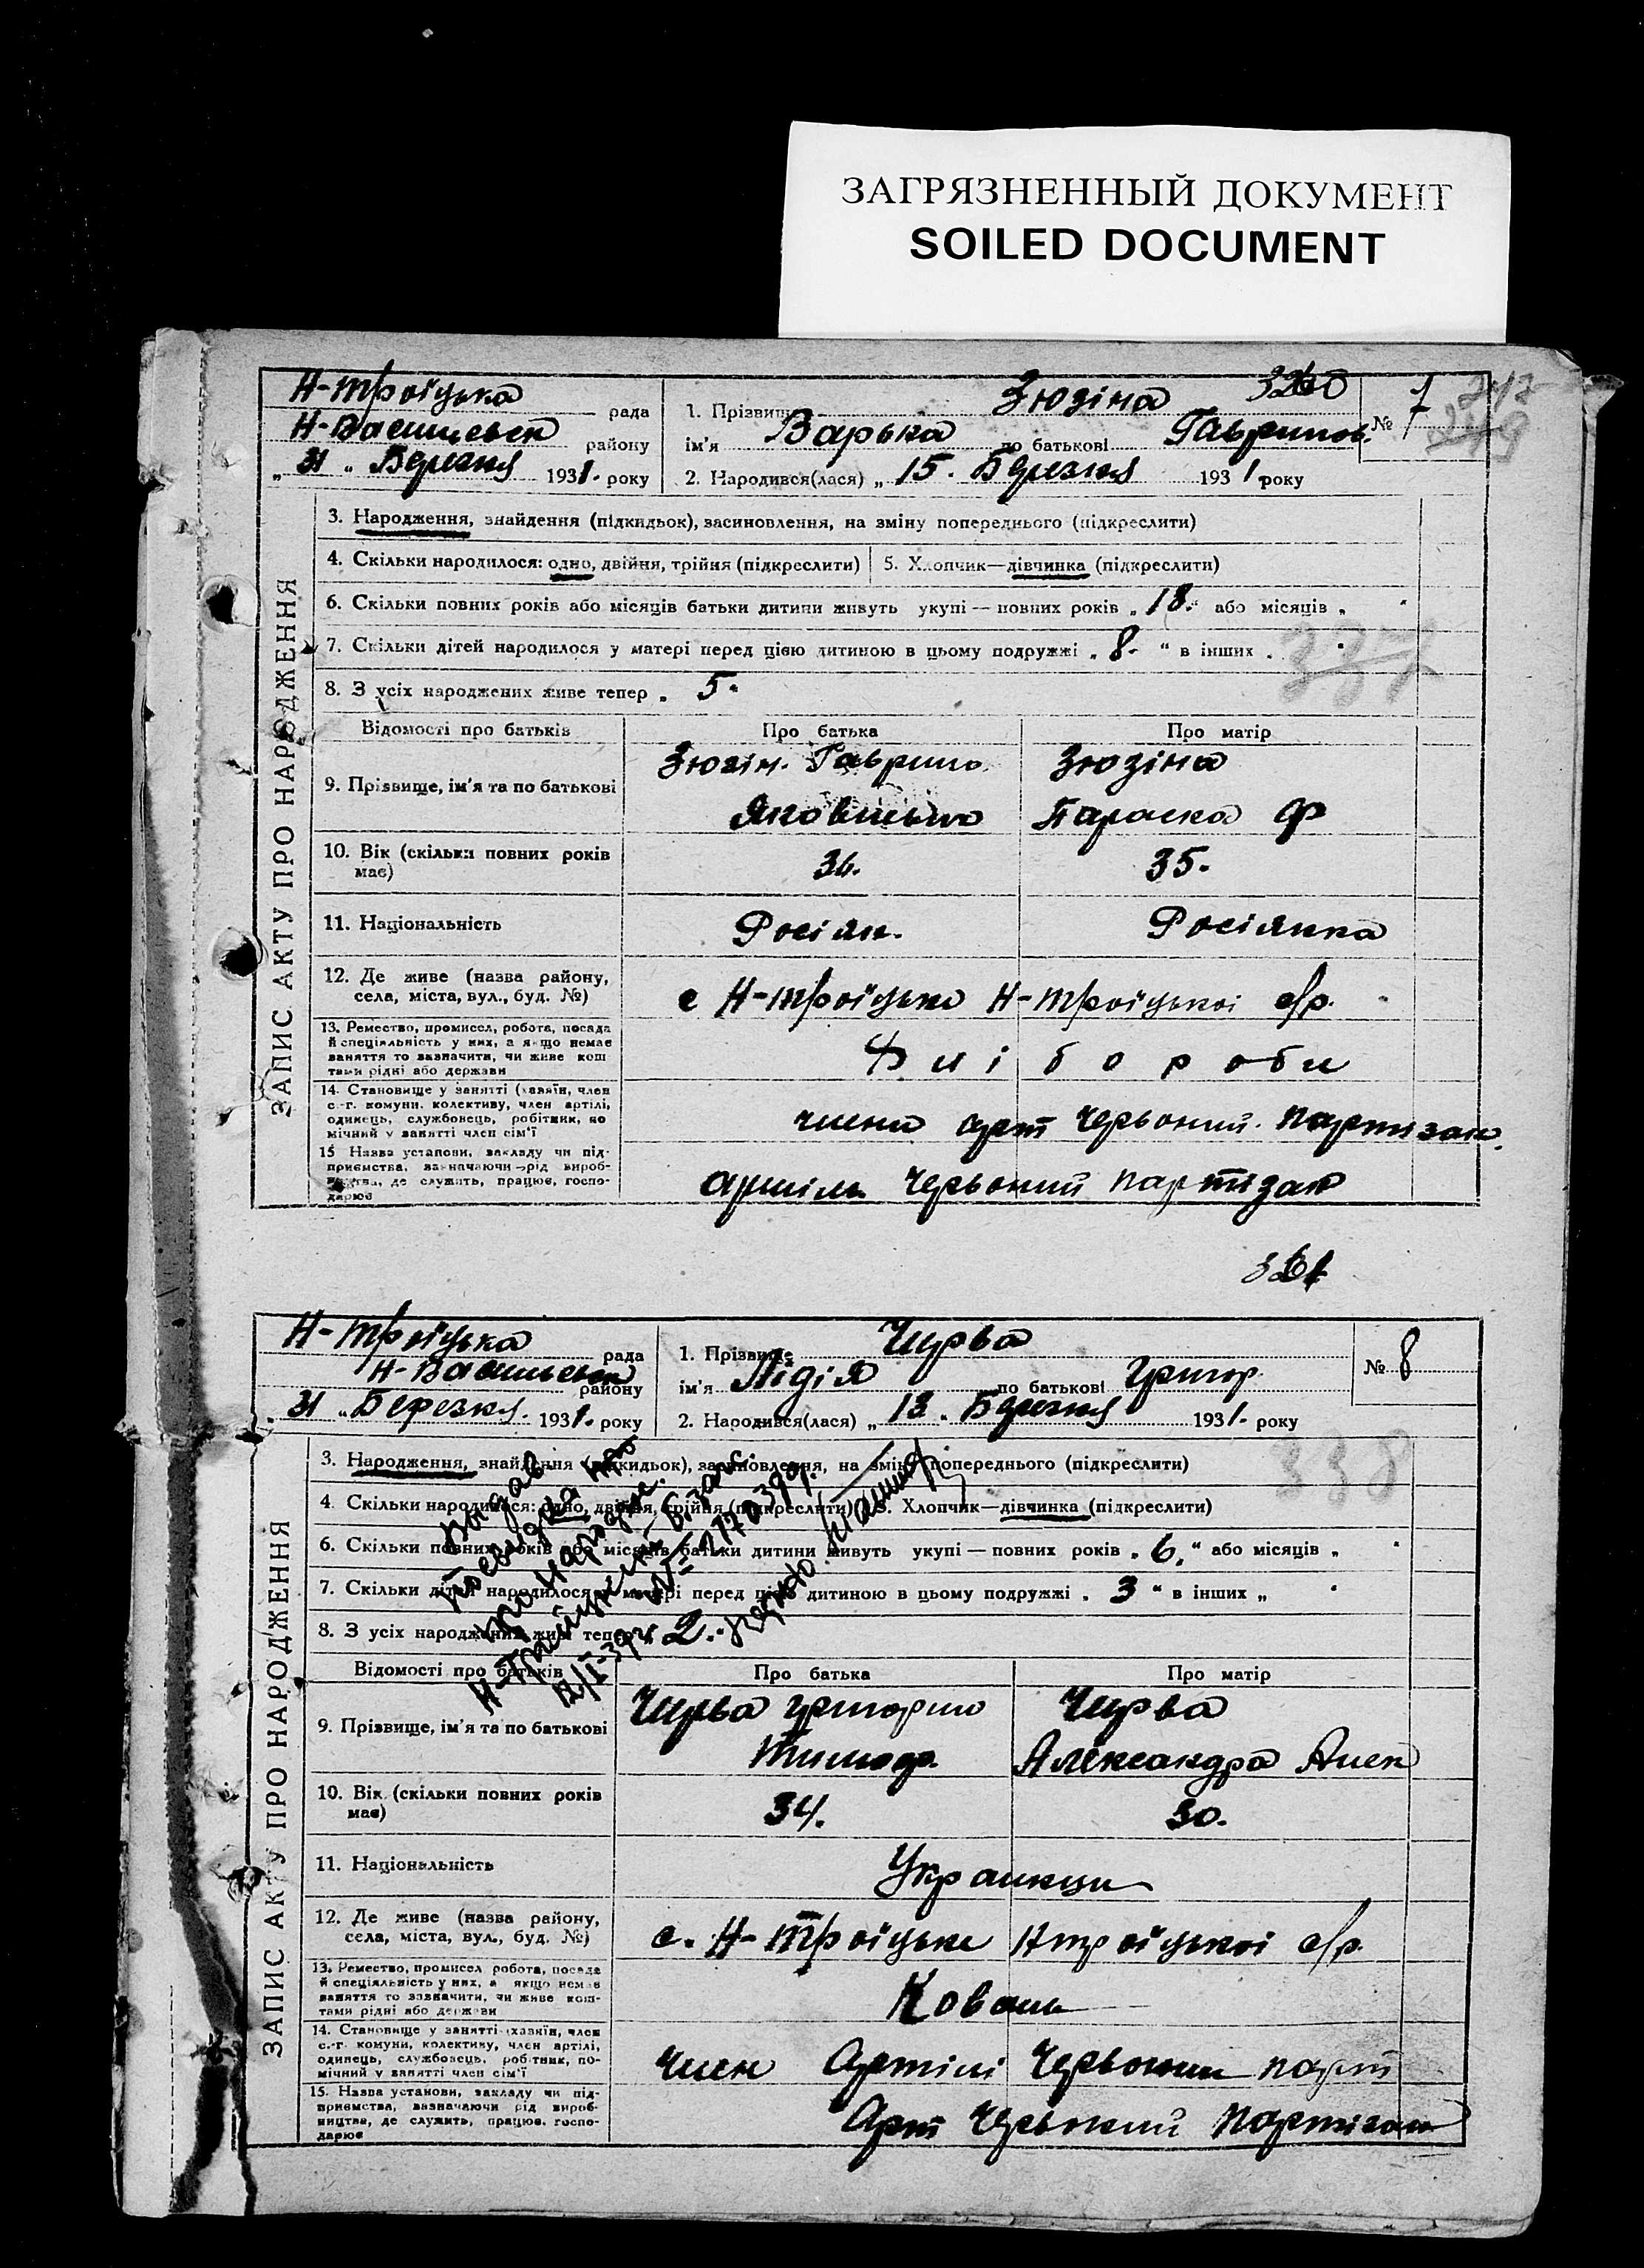 ЗАГРЯЗНЕННЫЙ ДОКУМЕНТ
SOILED DOCUMENT
Н-Троїцька рада
Н-Васильевск району
„ 31 „ Березня 1931. року
1. Прізвище Зюзіна
ім'я Варька по батькові Гаврилов.
2. Народився(лася) „ 15. Березня 1931 року
№ 7
ЗАПИС АКТУ ПРО НАРОДЖЕННЯ
3. Народження, знайдення (підкидьок), засиновлення, на зміну попереднього (підкреслити)
4. Скільки народилося: одно, двійня, трійня (підкреслити) 5. Хлопчик—дівчинка (підкреслити)
6. Скільки повних років або місяців батьки дитини живуть укупі — повних років „ 18. “ або місяців „
7. Скільки дітей народилося у матері перед цією дитиною в цьому подружжі „ 8. “ в інших „
337
8. З усіх народжених живе тепер „ 5.
Відомості про батьків Про батька Про матір
9. Прізвище, ім'я та по батькові
Зюзін. Гаврило Зюзіна
Яковлевич Параска Ф
10. Вік (скільки повних років має) 36. 35.
11. Національність Росіян. Росіянка
12. Де живе (назва району, села, міста, вул., буд. №)
с Н-Троїцьке Н-Троїцькоі с/р.
13. Ремество, промисел, робота, посада
й спеціяльність у них, а якщо немає
заняття то зазначити, чи живе кош
тами рідні або держави
Хліборобы
14. Становище у занятті (хазяїн, член
с.-г. комуни, колективу, член артілі,
одинець, службовець, робітник, по
мічний у занятті член сім'ї
члени арт Червоний. партизан.
15 Назва установи, закладу чи під-
приємства, зазначаючи рід вироб-
ництва, де служить, працює, госпо-
дарює
артіль Червоний партизан
Н-Троїцька рада
Н-Васильевск району
31 „ Березня. 1931. року
1. Прізвище Чирва
ім'я Лідія по батькові Григор.
2. Народився(лася) „ 13. Березня 1931. року
№ 8
ЗАПИС АКТУ ПРО НАРОДЖЕННЯ
3. Народження, знайдення (підкидьок), засиновлення, на зміну попереднього (підкреслити)
338
4. Скільки народилося: одно, двійня, трійня (підкреслити) 5. Хлопчик—дівчинка (підкреслити)
6. Скільки повних років або місяців батьки дитини живуть укупі — повних років „ 6. “ або місяців „
7. Скільки дітей народилося у матері перед цією дитиною в цьому подружжі „ 3 “ в інших „
8. З усіх народжених живе тепер „ 2.
Відомості про батьків Про батька Про матір
9. Прізвище, ім'я та по батькові
Чирва Григорий Чирва
Тимоф. Александра Алек
10. Вік (скільки повних років має) 34. 30.
11. Національність Украинци
12. Де живе (назва району, села, міста, вул., буд. №)
с. Н-Троїцьке Нтроїцькоі с/р.
13. Ремество, промисел робота, посада
й спеціяльність у них, а якщо немає
заняття то зазначити, чи живе кош-
тами рідні або держави
Коваль
14. Становище у занятті (хазяїн, член
с.-г. комуни, колективу, член артілі,
одинець, службовець, робітник, по-
мічний у занятті член сім'ї
член Артілі Червоний парт
15. Назва установи, закладу чи під-
приємства, зазначаючи рід вироб-
ництва, де служить, працює, госпо-
дарює
Арт Червоний партізан